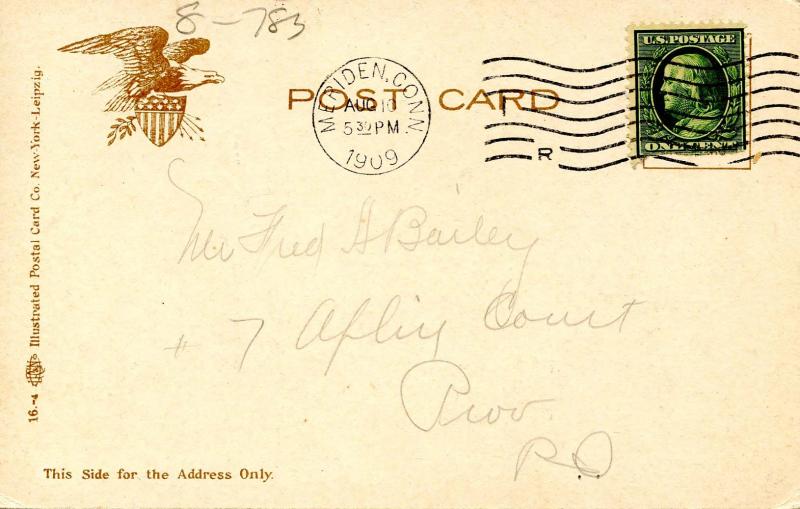 8-783
U.S. POSTAGE
ONE CENT
POST CARD
MERIDEN, CONN.
AUG 10
5 30 PM
1909
R
Mr Fred A Bailey
# 7 Court
Prov
R I
16.-4 Illustrated Postal Card Co. New-York-Leipzig.
This Side for the Address Only.